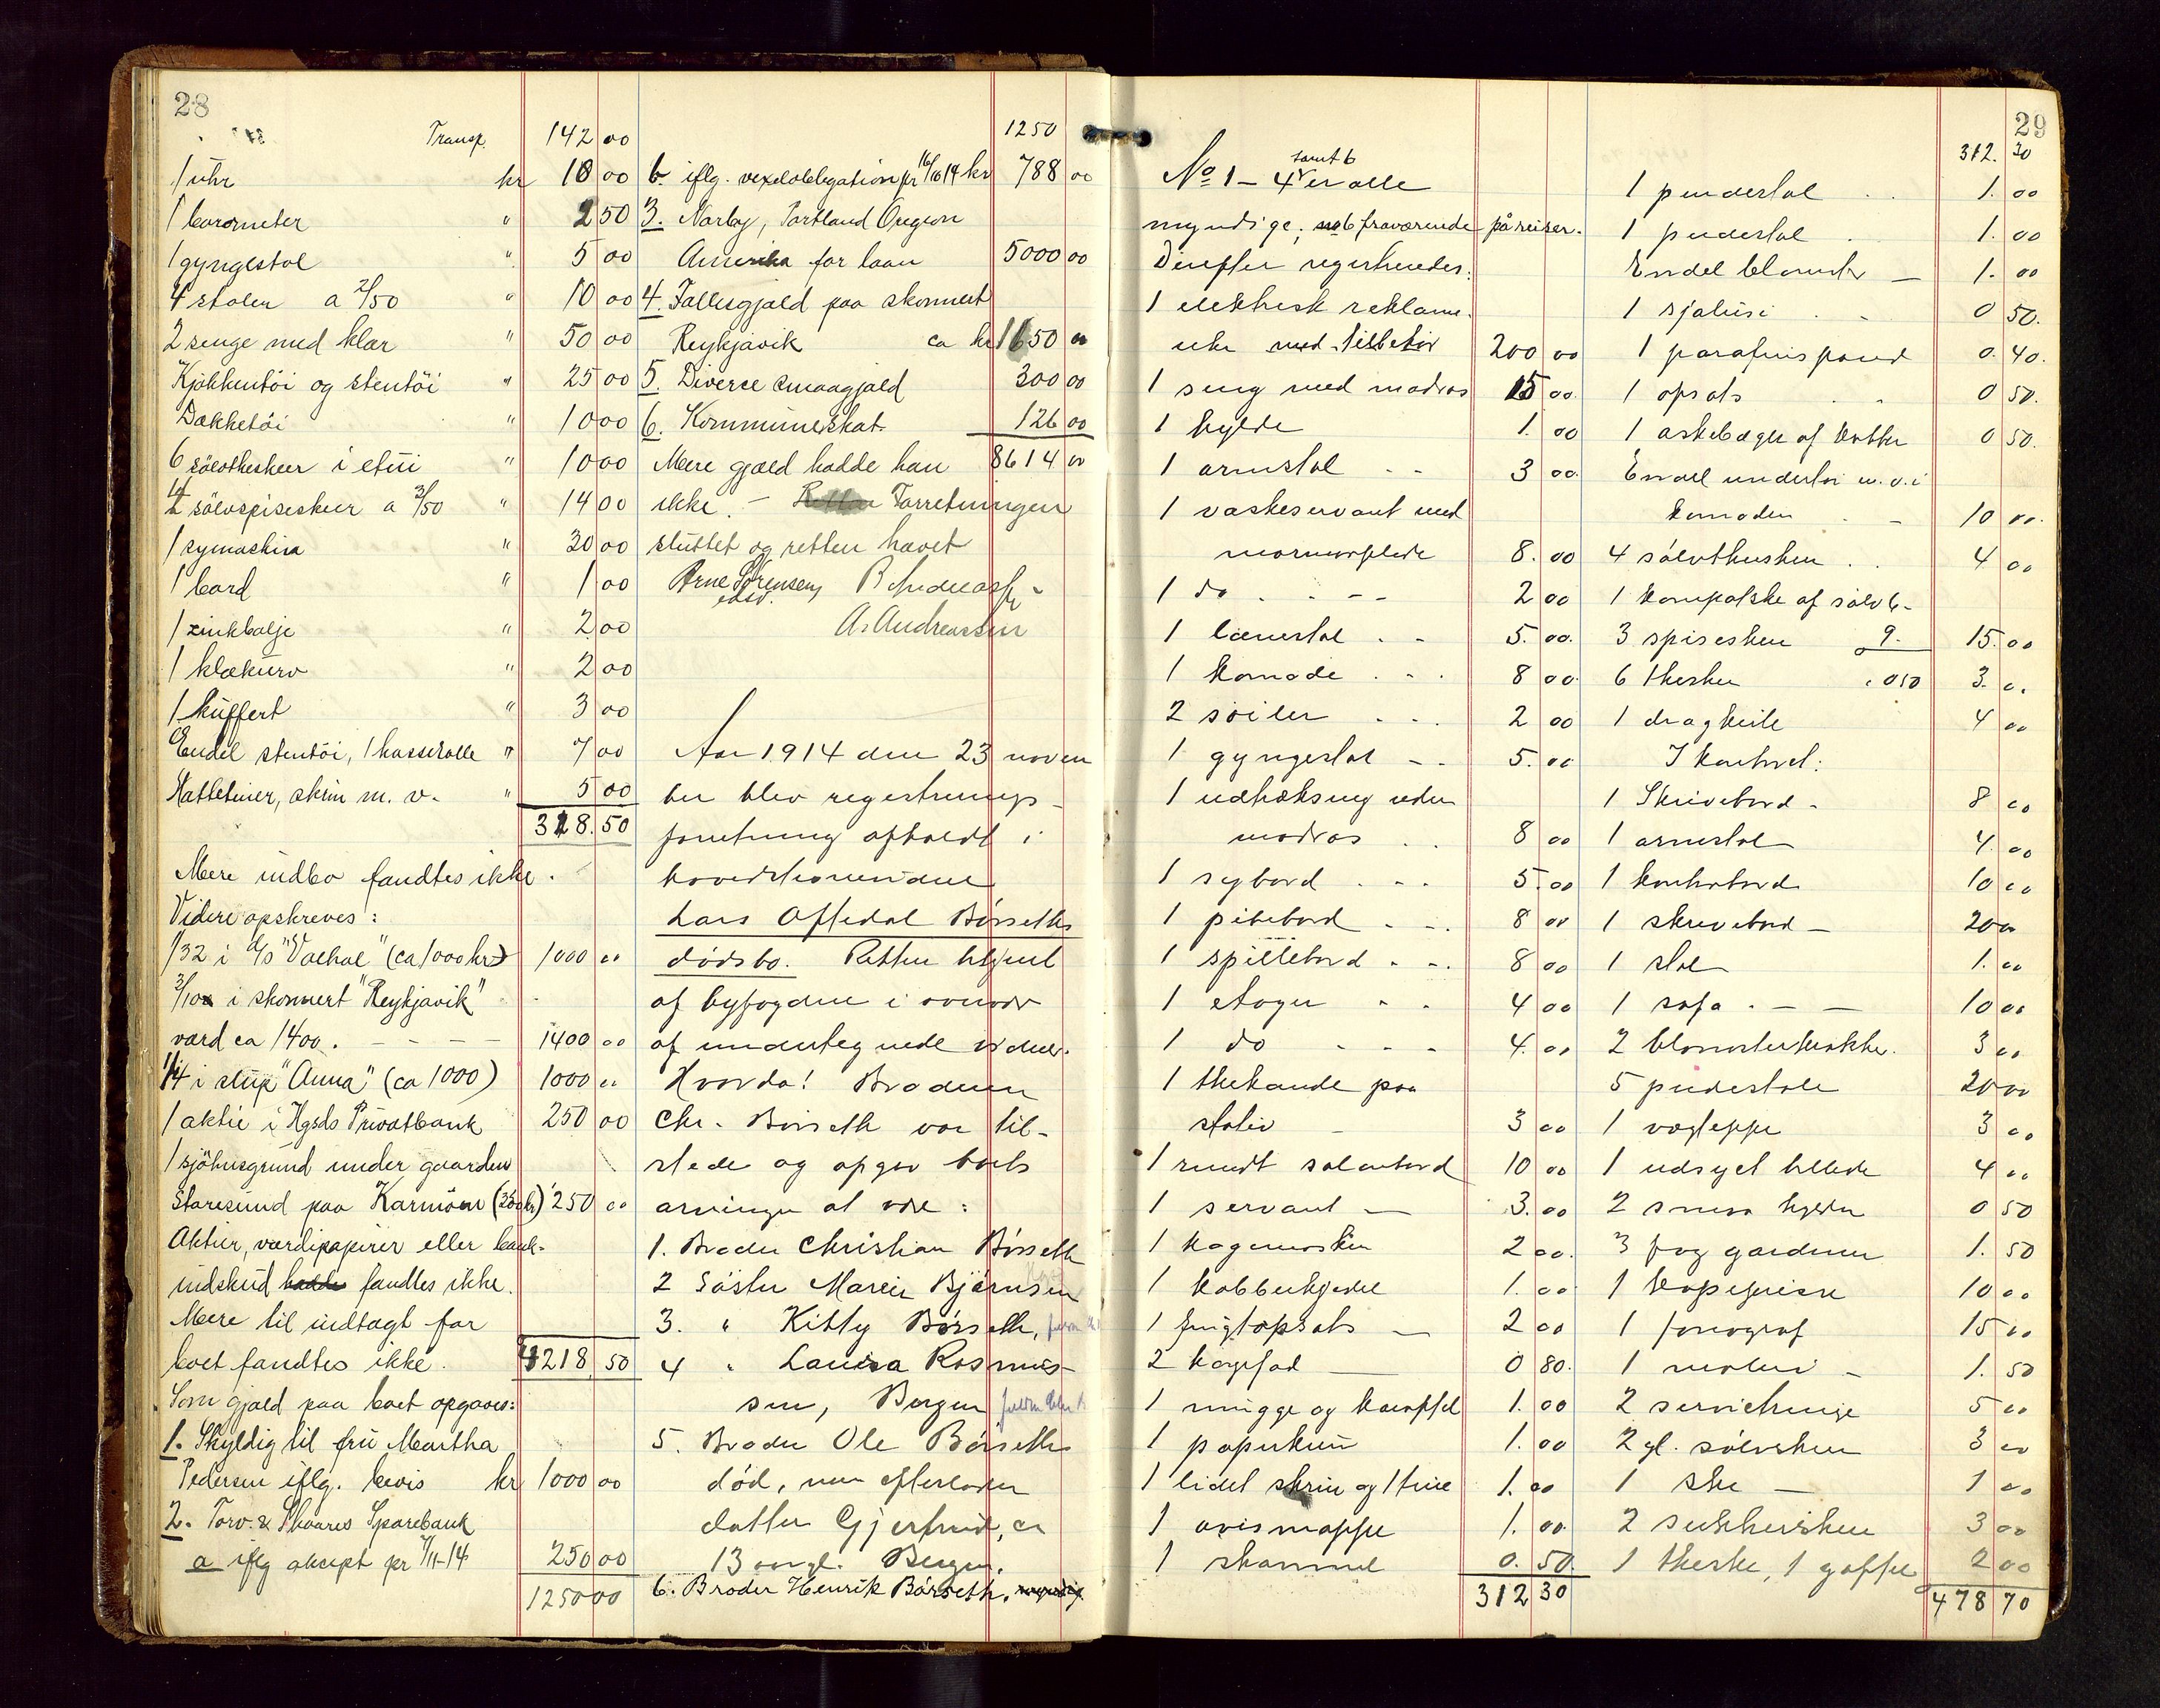 28
Transp. 142 00
1 uhr kr 10 00
1 barometer " 2 50
1 gyngestol " 5 00
4 stoler a 2/50 " 10 00
2 senge med klær " 50 00
Kjøkkentöi og stentöi " 25 00
Dækketöi " 10 00
6 sölvtheskeer i etui " 10 00
4 sölvspiseskeer a 3/50 " 14 00
1 symaskin " 30 00
1 bord " 1 00
1 zinkbalje " 2 00
1 klækurv " 2 00
1 kuffert " 3 00
Endel stentöi, 1 kasserolle " 7 00
Hatteteiner, skrin m. v. " 5 00
328.50
Mere indbo fandtes ikke.
Videre opskreves:
1/32 i d/s "Valhal" (ca 1000 kr) 1000 00
3/10 i skonnert "Reykjavik"
værd ca 1400. - - - - 1400 00
1/4 i slup "Anna" (ca 1000) 1000 00
1 aktie i Hgsds Privatbank 250 00
1 sjöhusgrund under gaarden
Storesund paa Karmöen (250 kr) 250 00
Aktier, værdipapirer eller bank-
indskud hadde fandtes ikke.
Mere til indtægt for
boet fandtes ikke. 4218 50
Som gjæld paa boet opgaves:
1. Skyldig til fru Martha
Pedersen iflg. bevis kr 1000 00
2. Torv. & Skaares Sparebank
a iflg aksept pr 7/11-14 250 00
1250 00
1250
b. iflg. vexelobligation pr 16/10 14 kr 788 00
3. Norby, Portland Oregon
Amerika for laan 5000 00
4. Fallesgjæld paa skonnert
Reykjavik ca kr 1650 00
5. Diverse smaagjæld 300 00
6. Kommuneskat 126 00
Mere gjæld hadde han 8614 00
ikke. - Retten Forretningen
sluttet og retten hævet
Arne Sörensen
edsv.
A. Andreassen
Aar 1914 den 23 novem
ber blev registrerings-
forretning afholdt i
hovedstervboet
Lars Oftedal Börseths
dödsbo. Retten betjent
af byfogden i overvær
af undertegnede vidner.
Hvorda! Broderen
Chr. Börseth var til-
stede og opgav boets
arvinger at være:
1. Broder Christian Börseth
2 Söster Marie Bjørnsen
3. " Kitty Börseth,
4 " Lauisa Rasmus-
sen, Bergen
5. Broder Ole Börseth
död, men efterlader
datter Gjertrud, ca
13 aar gl. Bergen.
6. Broder Henrik Börseth. myndig.
29
No 1 - 4 samt 6 er alle
myndige; no 6 fraværende på reiser.
Derefter registreredes:
1 elektrisk reklame-
uhr med tilbehör 200 00
1 seng med madras 15 00
1 hylde 1. 00
1 armstol - - 3 00
1 vaskeservant med
marmorplade 8. 00
1 do - - - 2 00
1 lænestol - - 5. 00
1 komode - - . 8 00
2 söiler - - . 2 00
1 gyngestol - - 5. 00
1 udtræksseng uden
madras . . 8 00
1 sybord . - - 5 00
1 pibebord - - . 8 00
1 spillebord - - . 8 00
1 etager - - 4 00
1 do - - - 4. 00
1 thekande paa
stativ - 3 00
1 rundt salonbord 10 00
1 servant - 3. 00
1 kagemaskin 2 00
1 kobberkjedel 1. 00
1 frugtopsats - 2 00
2 kagefad - 0 80
1 mugge og 1. 00
1 papirkurv 1. 00
1 lidet skrin og 1 tine 1. 00
1 avismappe 1. 00
1 skammel 0. 50
312 30
312. 30
1 pendestol . . 1. 00
1 pudestol . 1. 00
Endel blomster - 1. 00
1 sjalusi . - 0 50
1 parafinspand 0. 40
1 opsats . - 0 50
1 askebæger af kobber 0 50
Endel undertöi m. v. i
komoden . - 10 00
4 sölvtheskeer . . 4 00
1 kompotske af sölv 6-
3 spiseskeer 9.- 15. 00
6 theskeer . 050 3. 00
1 dragkiste 4 00
I kontoret:
1 Skrivebord - 8 00
1 armstol 4. 00
1 kontorbord 10 00
1 skrivebord - 20 00
1 stol 1. 00
1 sofa . - - 10 00
2 blomsterkrukker. 3 00
5 pudestole 20 00
1 vægteppe 3 00
1 udsyet billede 4 00
2 smaa hylder 0 50
3 fag gardiner 1. 50
1 kopipresse 10 00
1 fonograf 15 00
1 - 1. 50
2 servietringe 5 00
2 gl. sölvskeer 3 00
1 ske - 1 00
2 sukkerskeer 3 00
1 theske, 1 gaffel 2 00
478 70